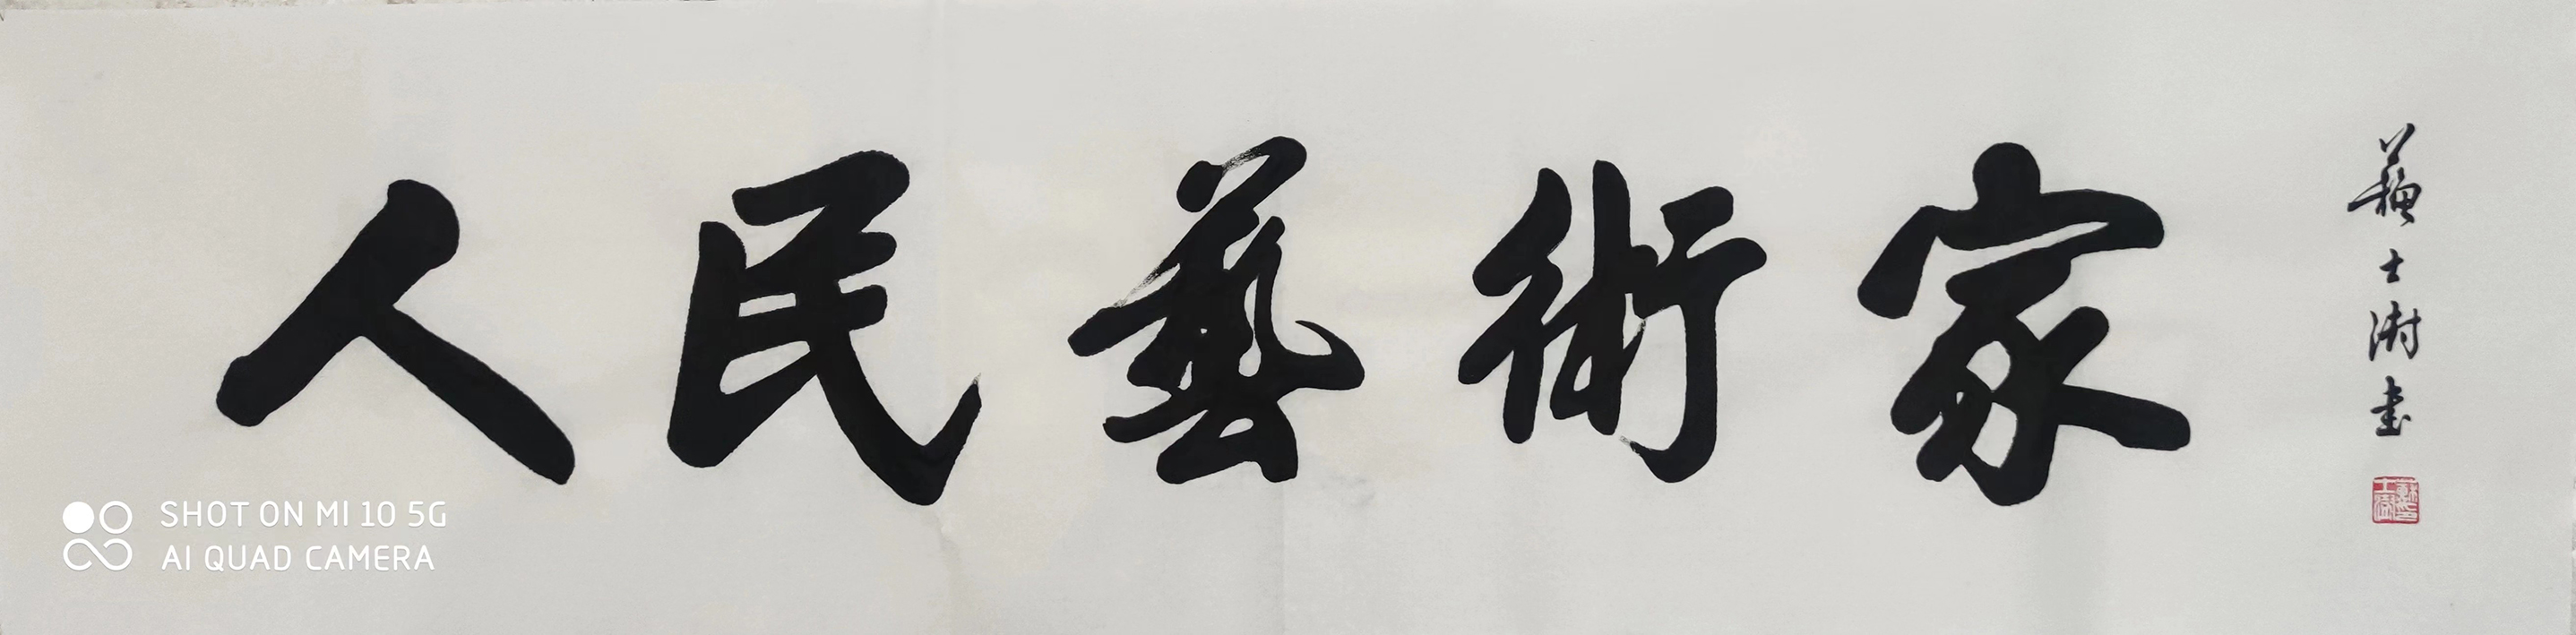 人民藝術家
蘇士澍書
SHOT ON MI 10 5G
AI QUAD CAMERA